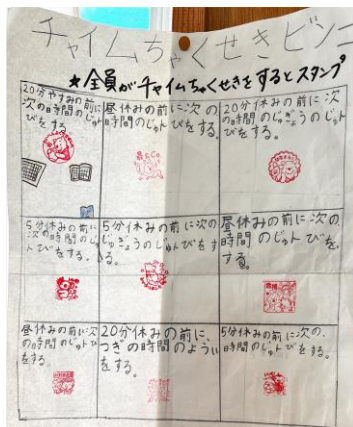 チャイムちゃくせきビンゴ
★全員がチャイムちゃくせきをするとスタンプ
20分やすみの前に
次の時間のじゅん
びをする。
昼休みの前に次の
時間のじゅんびをする。
20分休みの前に次
のじゅぎょうのじゅん
びをする。
5分休みの前に
次の時間のじ
ゅんびをする。
5分休みの前に次の
じゅぎょうのじゅんびをす
る。
昼休みの前に次の
時間のじゅんびを
する。
昼休みの前に次
の時間のじゅんび
をする。
20分休みの前に、
つぎの時間のようい
をする。
5分休みの前に次の、
時間のじゅんびをする。